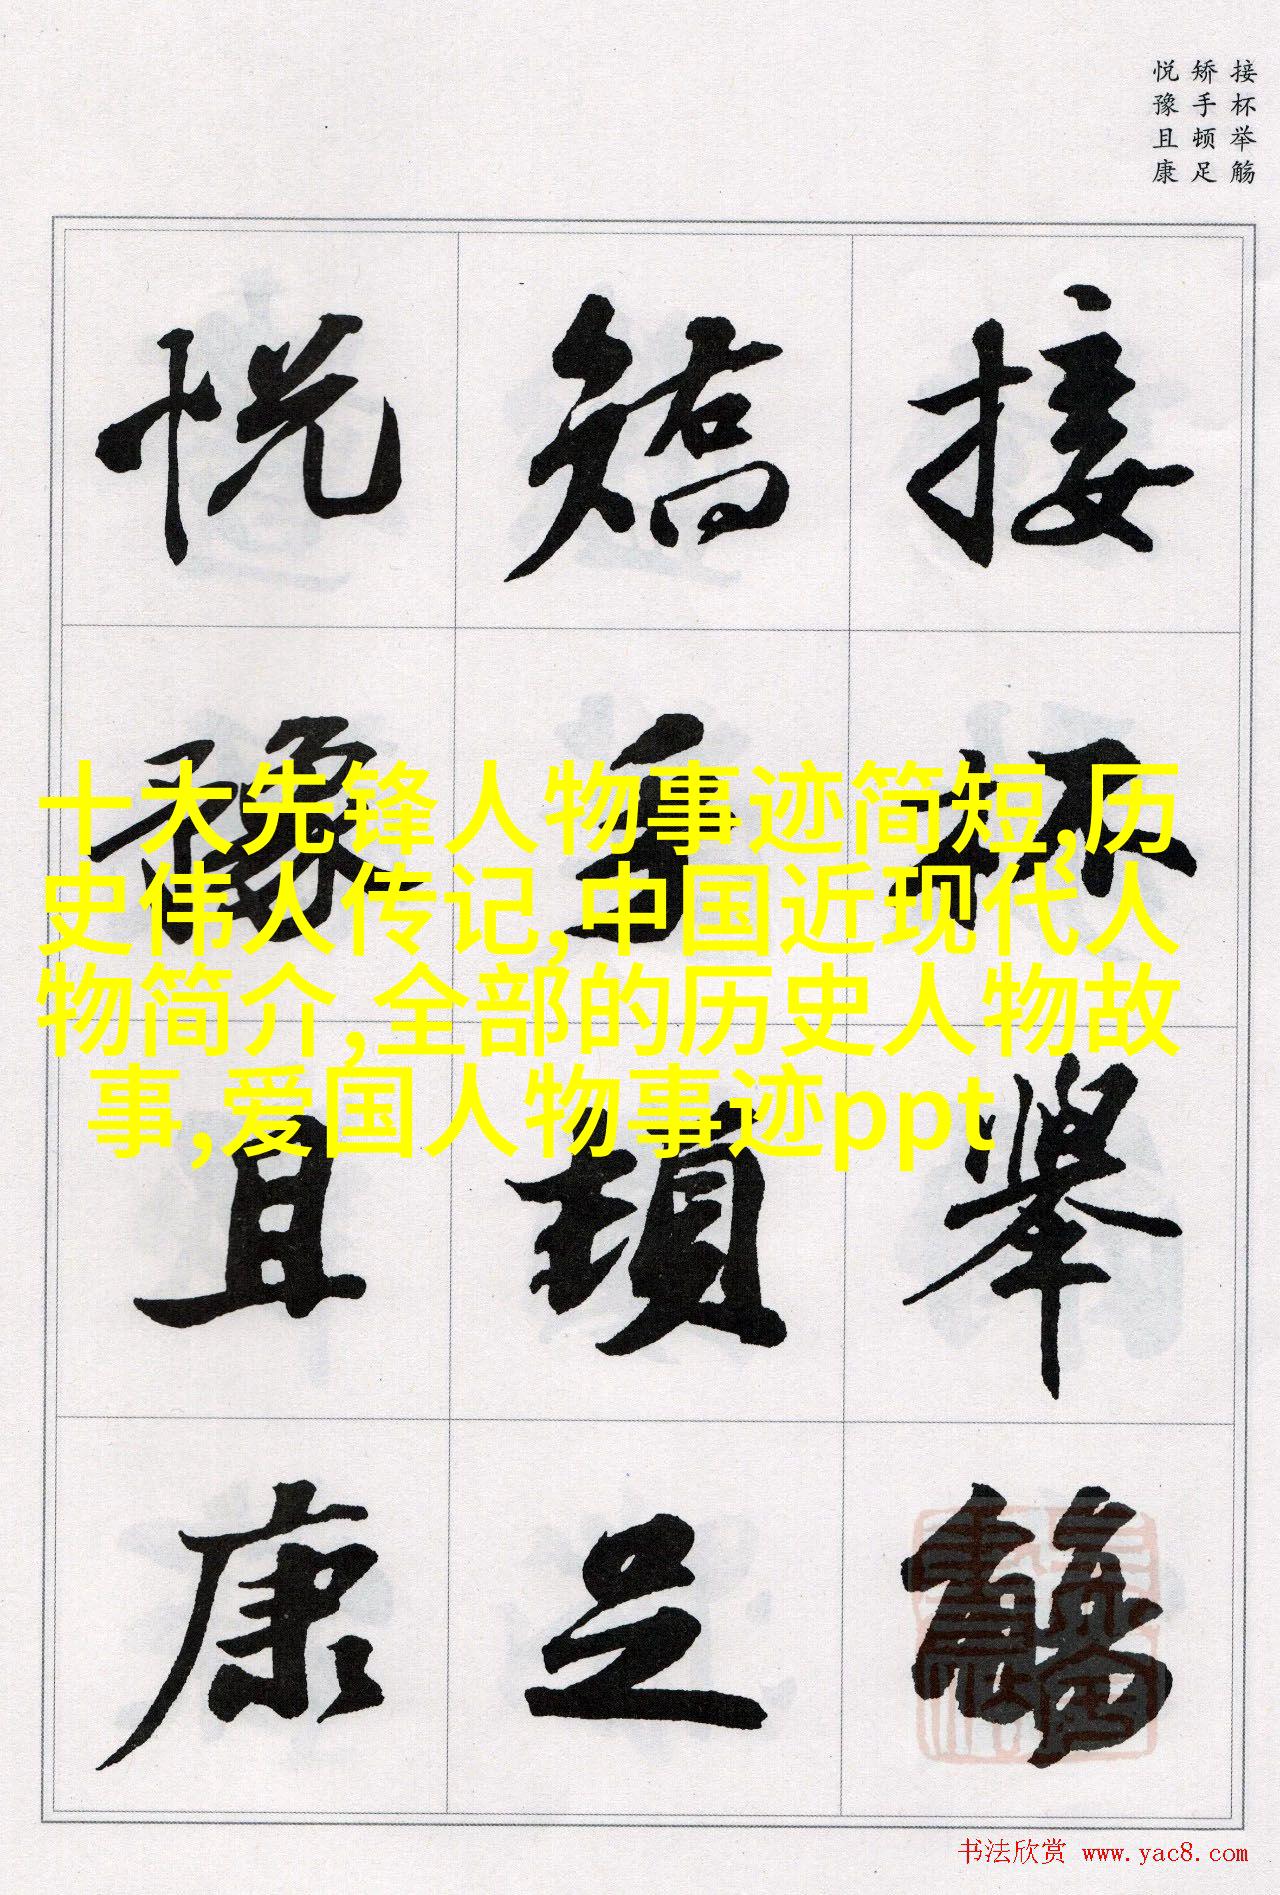 接杯举觞
矫手顿足
悦豫且康
接杯舉觴
矯手頓足
悦豫且康
十大先锋人物事迹简短,历
史伟人传记,中国近现代人
物简介,全部的历史人物故
事,爱国人物事迹ppt
书法欣赏 www.yac8.com